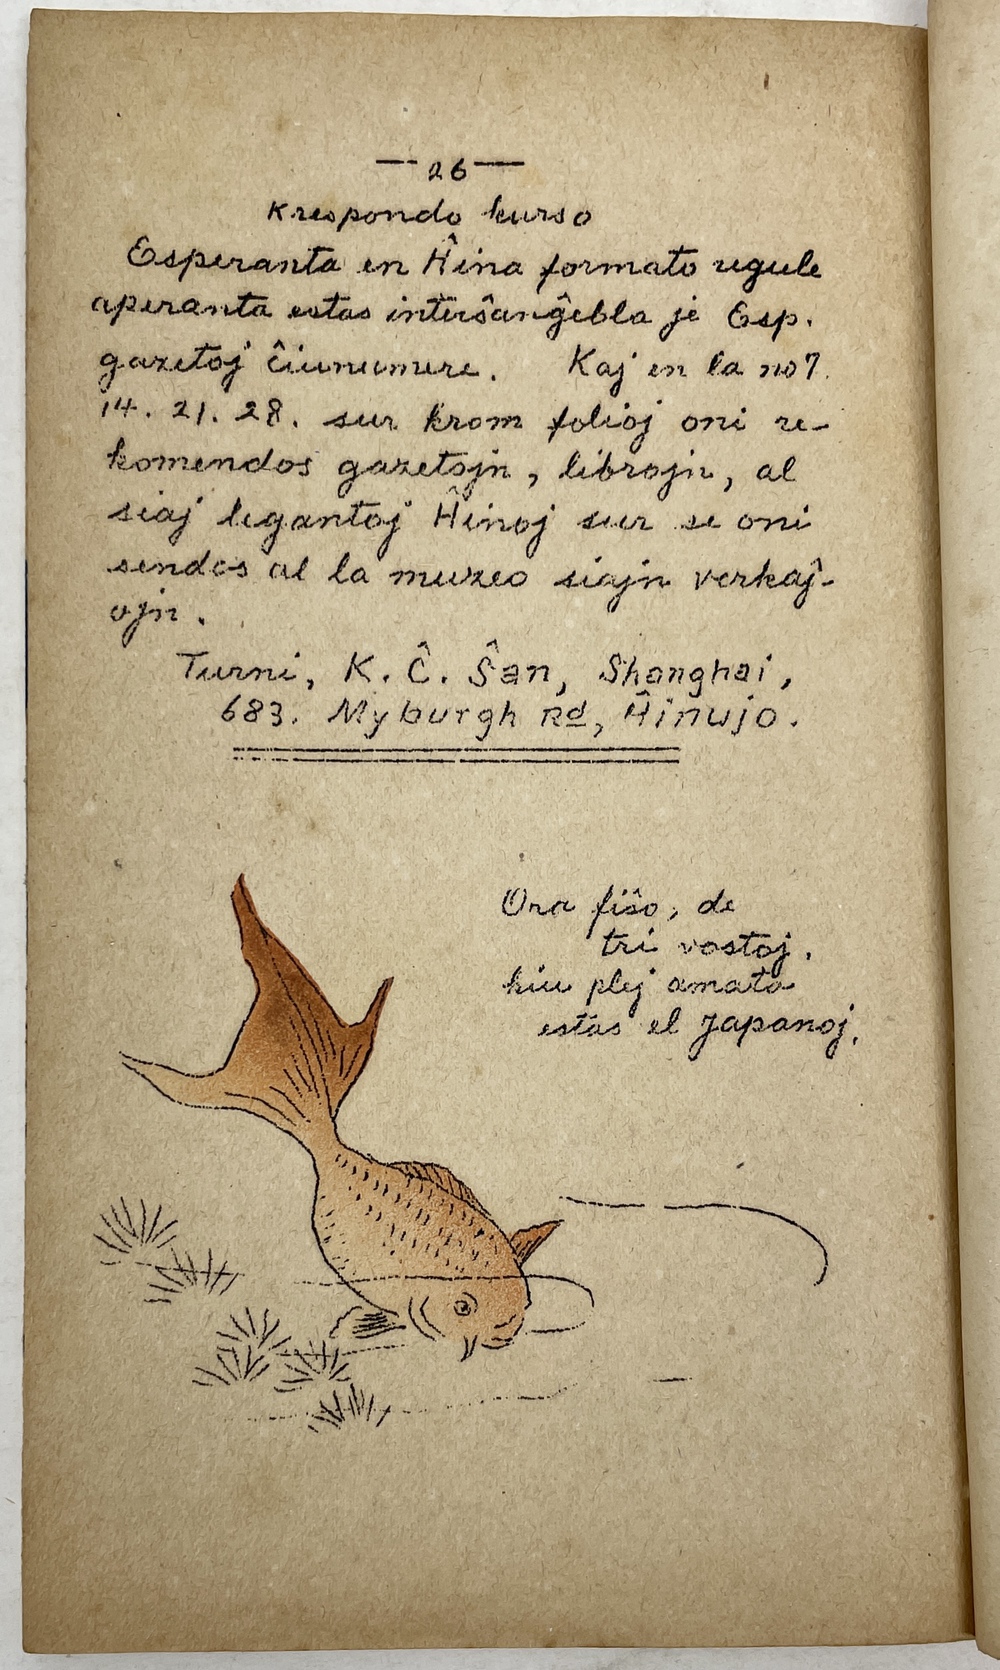 — 26 —
Krespondo kurso
Esperanta en Ĥina formato regule
aperanta estas interŝanĝebla je Esp.
gazetoj ĉiunumere. Kaj en la no 7.
14. 21. 28. sur krom folioj oni re-
komendos gazetojn, librojn, al
siaj legantoj Ĥinoj sur se oni
sendos al la muzeo siajn verkaĵ-
ojn.
Turni, K. Ĉ. Ŝan, Shanghai,
683. Myburgh Rd, Ĥinujo.
Ora fiŝo, de
tri vostoj.
kiu plej amata
estas el Japanoj.